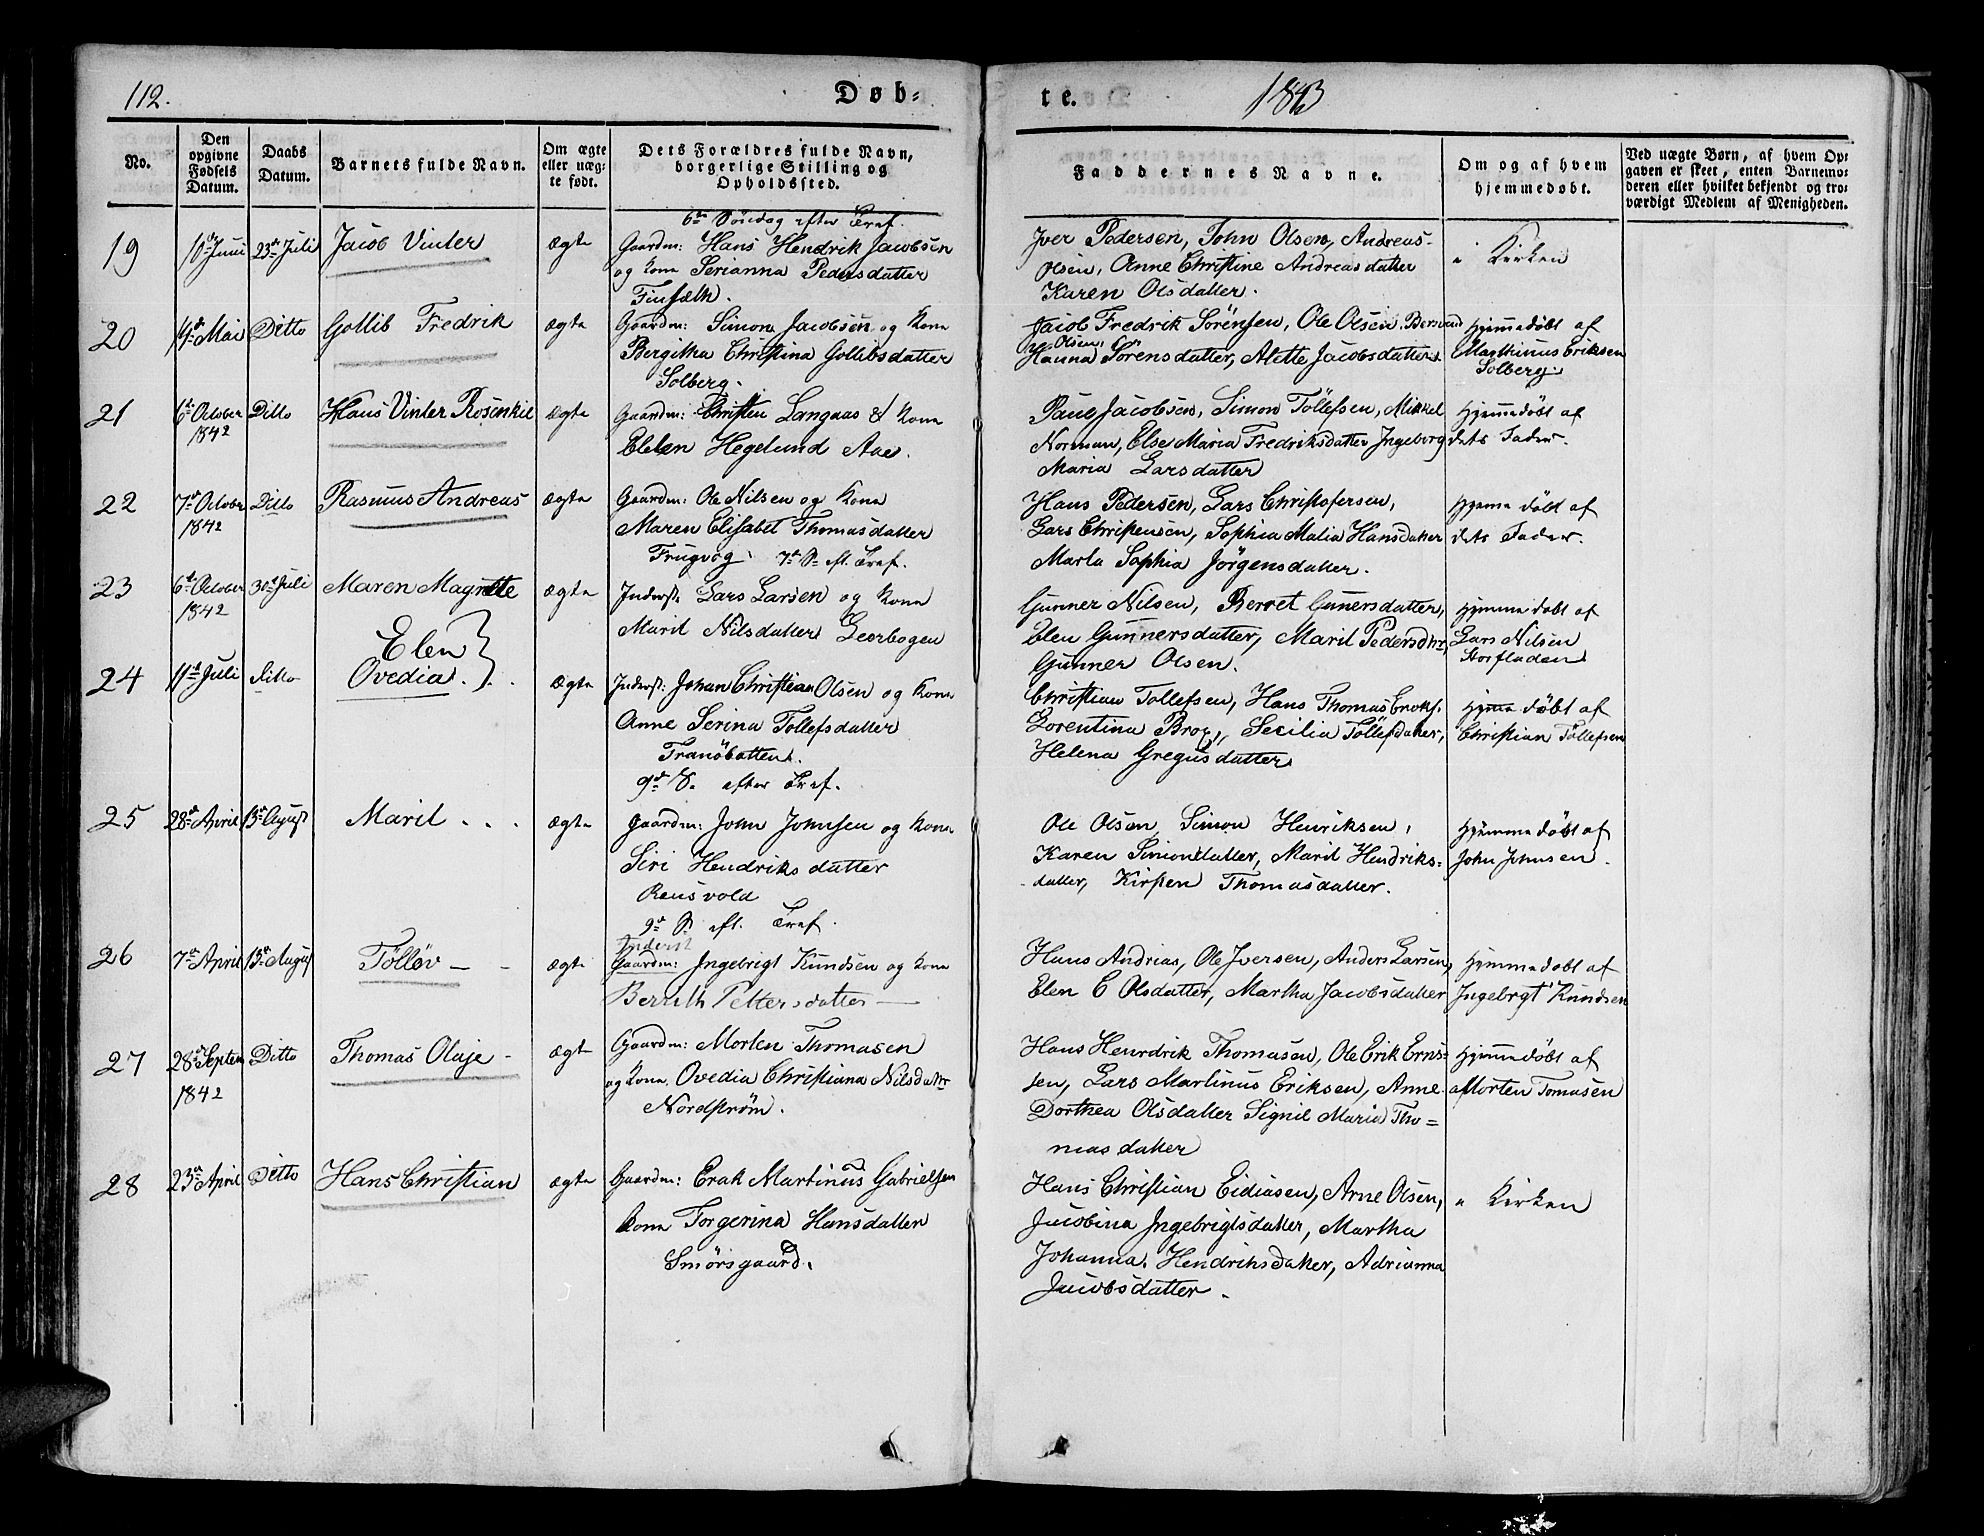 112.
Døb-
te.
1843
No.
Den opgivne Fødsels Datum.
Daabs Datum.
Barnets fulde Navn.
Om ægte eller uægte født.
Dets Forældres fulde Navn, borgerlige Stilling og Opholdssted.
Faddernes Navne.
Om og af hvem hjemmedøbt.
Ved uægte Børn, af hvem Opgaven er skeet, enten Barnemoderen eller hvilket bekjendt og troværdigt Medlem af Menigheden.
6te Söndag efter Tref.
19 10de Juni 23de Juli Jacob Vinter ægte Gaardm: Hans Hendrik Jacobsen
og Kona Serianna Pedersdatter
Iver Pedersen, John Olsen, Andreas
Olsen, Anne Christine Andreasdatter
Karen Olsdatter.
i Kirken
20 14de Mai Ditto Gollib Fredrik ægte Gaardm: Simon Jacobsen og Kona
Bergitha Christina Gollibsdatter
Solberg.
Jacob Fredrik Sörensen, Ole Olsen, Bernard
Olsen,
Hanna Sörensdatter, Alette Jacobsdatter.
Hjemmedøbt af
Marthinus Eriksen
Solberg.
21 6te October 1842 Ditto Hans Vinter Rosenkil ægte Gaardm: Christen Langaas & Kona
Elen Hegelund Aae.
Paul Jacobsen, Simon Töllefsen, Mikkel
Norman, Else Maria Fredriksdatter, Ingeborg
Maria Larsdatter
Hjemmedøbt af
dets Fader.
22 7de October 1842 Ditto Rasmus Andreas ægte Gaardm: Ole Nilsen og Kona
Maren Elisabet Thomasdatter
Frugvog. 7de S. eft. Tref.
Hans Pedersen, Lars Christofersen,
Lars Christensen, Sophia Malia Hansdatter
Marta Sophia Jörgensdatter.
Hjemmedøbt af
dets Fader.
23 6te October 1842 30te Juli Maren Magrete ægte Inderst: Lars Larsen og Kona
Marit Nilsdatter Leerbogen
Gunner Nilsen, Berret Gunersdatter,
Elen Gunnersdatter, Marit Pedersdtr,
Gunner Olsen.
Hjemmedøbt af
Lars Nilsen
Storfladen
24 11te Juli Ditto Elen
Ovedia. ægte Inderst: Johan Christian Olsen og Kona
Anne Serina Tollefsdatter
Tranöbotten.
9de S. efter Tref.
Christian Tollefsen, Hans Thomas Enoks.
Lorentina Brox, Secilia Töllefsdatter,
Helena Gregusdatter
Hjemmedøbt af
Christian Töllefsen
25 28de April 13de August Marit ægte Gaardm: John Johnsen og Kona
Siri Hendriksdatter
Rensvold
9de S. eft. Tref.
Ole Olsen, Simon Henriksen,
Karen Simonsdatter, Marit Hendriks-
datter, Kirsten Thomasdatter.
Hjemmedøbt af
John Johnsen.
26 7de April 13de August Tölløv ægte Inderst
Gaardm: Ingebrigt Kundsen og Kona
Bereth Pettersdatter
Hans Andrias, Ole Iversen, Anders Larsen,
Elen C Olsdatter, Martha Jacobsdatter
Hjemmedøbt af
Ingebrgt Kundsen
27 28de Septem 1842 Ditto Thomas Olaje ægte Gaardm: Morten Thomasen
og Kona Ovedia Christiana Nilsdatter
Nordstrøm.
Hans Henrdrik Thomasen, Ole Erik Erns-
sen, Lars Martinus Eriksen, Anne
Dorthea Olsdatter Signil Maria Tho-
masdatter
Hjemmedøbt af
Morten Tomasen
28 23de April Ditto Hans Christian ægte Gaardm: Erak Martinus Gabrielsen
Kona Torgerina Hansdatter
Smörsgaard.
Hans Christian Eidiasen, Arne Olsen,
Jacobina Ingebrigtsdatter, Martha
Johanna Hendriksdatter, Adrianna
Jacobsdatter.
i Kirken